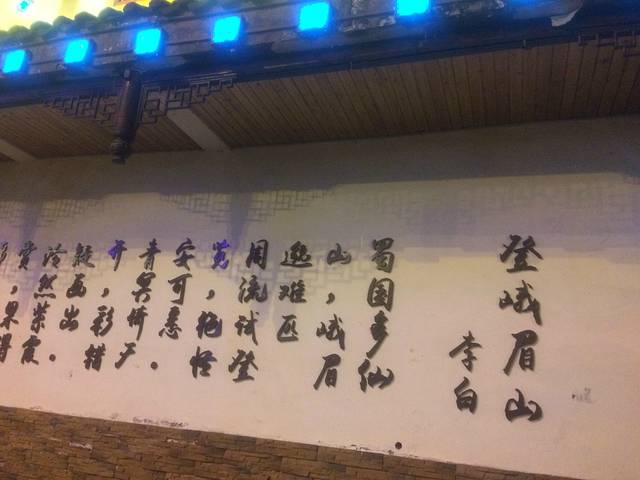 登峨眉山
李白
蜀国多仙
山，峨眉
邈难匹
周流试登
览，绝怪
安可悉。
青冥倚天
开，彩错
疑画出。
泠然紫霞
赏，果得